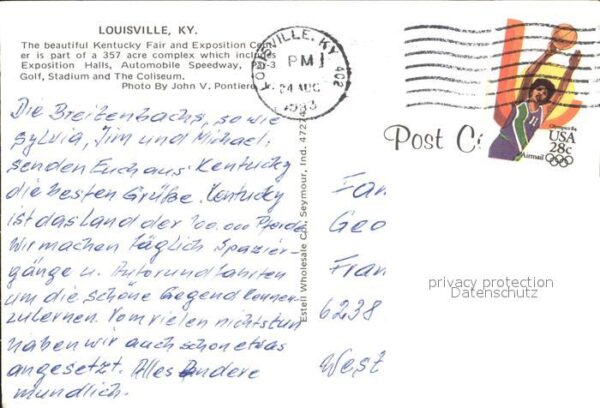 LOUISVILLE, KY.
The beautiful Kentucky Fair and Exposition Cen-
er is part of a 357 acre complex which includes
Exposition Halls, Automobile Speedway, Par-3
Golf, Stadium and The Coliseum.
Photo By John V. Pontiere
LOUISVILLE, KY 402
PM
24 AUG
1983
Olympics 84
USA
28c
Airmail
Post C
Die Breitenbachs, so wie
Sylvia, Jim und Michael,
senden Euch aus Kentucky
die besten Grüße. Kentucky
ist das Land der 100.000 Pferde
Wir machen täglich Spazier-
gänge u. Autorundfahrten
um die schöne Gegend kennen-
zulernen. Vom vielen nichtstun
haben wir auch schon etwas
angesetzt. Alles Andere
mündlich.
Estell Wholesale Co., Seymour, Ind. 47274
Fam
Geo
Fran
6238
West
privacy protection
Datenschutz